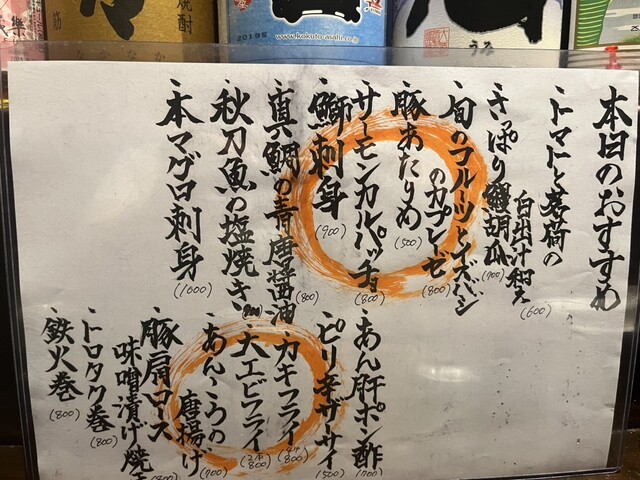 本日のおすすめ
、トマトと茗荷の
白出汁和え
(600)
、さっぱり鰻胡瓜
(700)
、旬のフルーツとイチジク
のカプレーゼ
(800)
、豚あたりめ
(500)
、サーモンカルパッチョ
(800)
、鰤刺身
(900)
、真鯛の青唐醤油
(800)
、秋刀魚の塩焼き
、本マグロ刺身
(1600)
、あん肝ポン酢
(700)
、ピリ辛ザーサイ
(500)
、カキフライ
800)
、大エビフライ
(2本
800)
、あんこうの
唐揚げ
(700)
、豚肩ロース
味噌漬け焼き
、トロタク巻
(800)
、鉄火巻
(800)
焼酎
2019
www.kokuto-asahi.com
うみ